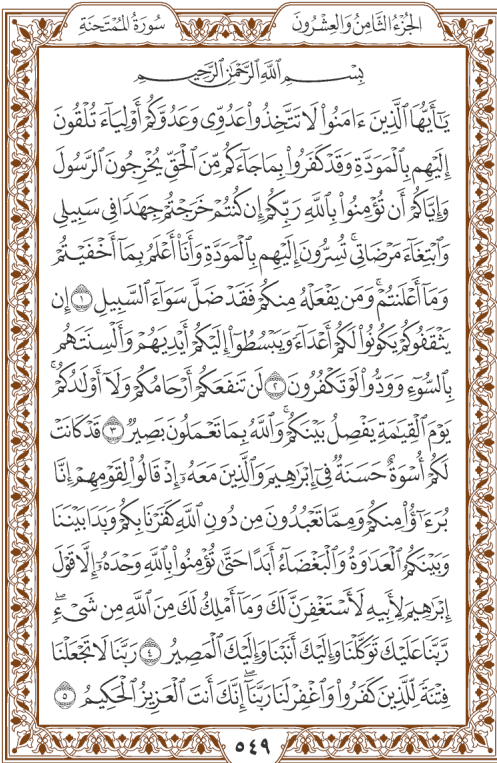 الجُزْءُ الثَّامِنُ وَالعِشْرُونَ
سُورَةُ المُمْتَحنَةِ
بِسْمِ اللَّهِ الرَّحْمَٰنِ الرَّحِيمِ
يَٰٓأَيُّهَا ٱلَّذِينَ ءَامَنُوا۟ لَا تَتَّخِذُوا۟ عَدُوِّى وَعَدُوَّكُمْ أَوْلِيَآءَ تُلْقُونَ
إِلَيْهِم بِٱلْمَوَدَّةِ وَقَدْ كَفَرُوا۟ بِمَا جَآءَكُم مِّنَ ٱلْحَقِّ يُخْرِجُونَ ٱلرَّسُولَ
وَإِيَّاكُمْ أَن تُؤْمِنُوا۟ بِٱللَّهِ رَبِّكُمْ إِن كُنتُمْ خَرَجْتُمْ جِهَٰدًا فِى سَبِيلِى
وَٱبْتِغَآءَ مَرْضَاتِى تُسِرُّونَ إِلَيْهِم بِٱلْمَوَدَّةِ وَأَنَا۠ أَعْلَمُ بِمَآ أَخْفَيْتُمْ
وَمَآ أَعْلَنتُمْ وَمَن يَفْعَلْهُ مِنكُمْ فَقَدْ ضَلَّ سَوَآءَ ٱلسَّبِيلِ ١ إِن
يَثْقَفُوكُمْ يَكُونُوا۟ لَكُمْ أَعْدَآءً وَيَبْسُطُوٓا۟ إِلَيْكُمْ أَيْدِيَهُمْ وَأَلْسِنَتَهُم
بِٱلسُّوٓءِ وَوَدُّوا۟ لَوْ تَكْفُرُونَ ٢ لَن تَنفَعَكُمْ أَرْحَامُكُمْ وَلَآ أَوْلَٰدُكُمْ
يَوْمَ ٱلْقِيَٰمَةِ يَفْصِلُ بَيْنَكُمْ وَٱللَّهُ بِمَا تَعْمَلُونَ بَصِيرٌ ٣ قَدْ كَانَتْ
لَكُمْ أُسْوَةٌ حَسَنَةٌ فِىٓ إِبْرَٰهِيمَ وَٱلَّذِينَ مَعَهُۥٓ إِذْ قَالُوا۟ لِقَوْمِهِمْ إِنَّا
بُرَءَٰٓؤُا۟ مِنكُمْ وَمِمَّا تَعْبُدُونَ مِن دُونِ ٱللَّهِ كَفَرْنَا بِكُمْ وَبَدَا بَيْنَنَا
وَبَيْنَكُمُ ٱلْعَدَٰوَةُ وَٱلْبَغْضَآءُ أَبَدًا حَتَّىٰ تُؤْمِنُوا۟ بِٱللَّهِ وَحْدَهُۥٓ إِلَّا قَوْلَ
إِبْرَٰهِيمَ لِأَبِيهِ لَأَسْتَغْفِرَنَّ لَكَ وَمَآ أَمْلِكُ لَكَ مِنَ ٱللَّهِ مِن شَىْءٍ
رَّبَّنَا عَلَيْكَ تَوَكَّلْنَا وَإِلَيْكَ أَنَبْنَا وَإِلَيْكَ ٱلْمَصِيرُ ٤ رَبَّنَا لَا تَجْعَلْنَا
فِتْنَةً لِّلَّذِينَ كَفَرُوا۟ وَٱغْفِرْ لَنَا رَبَّنَآ إِنَّكَ أَنتَ ٱلْعَزِيزُ ٱلْحَكِيمُ ٥
٥٤٩